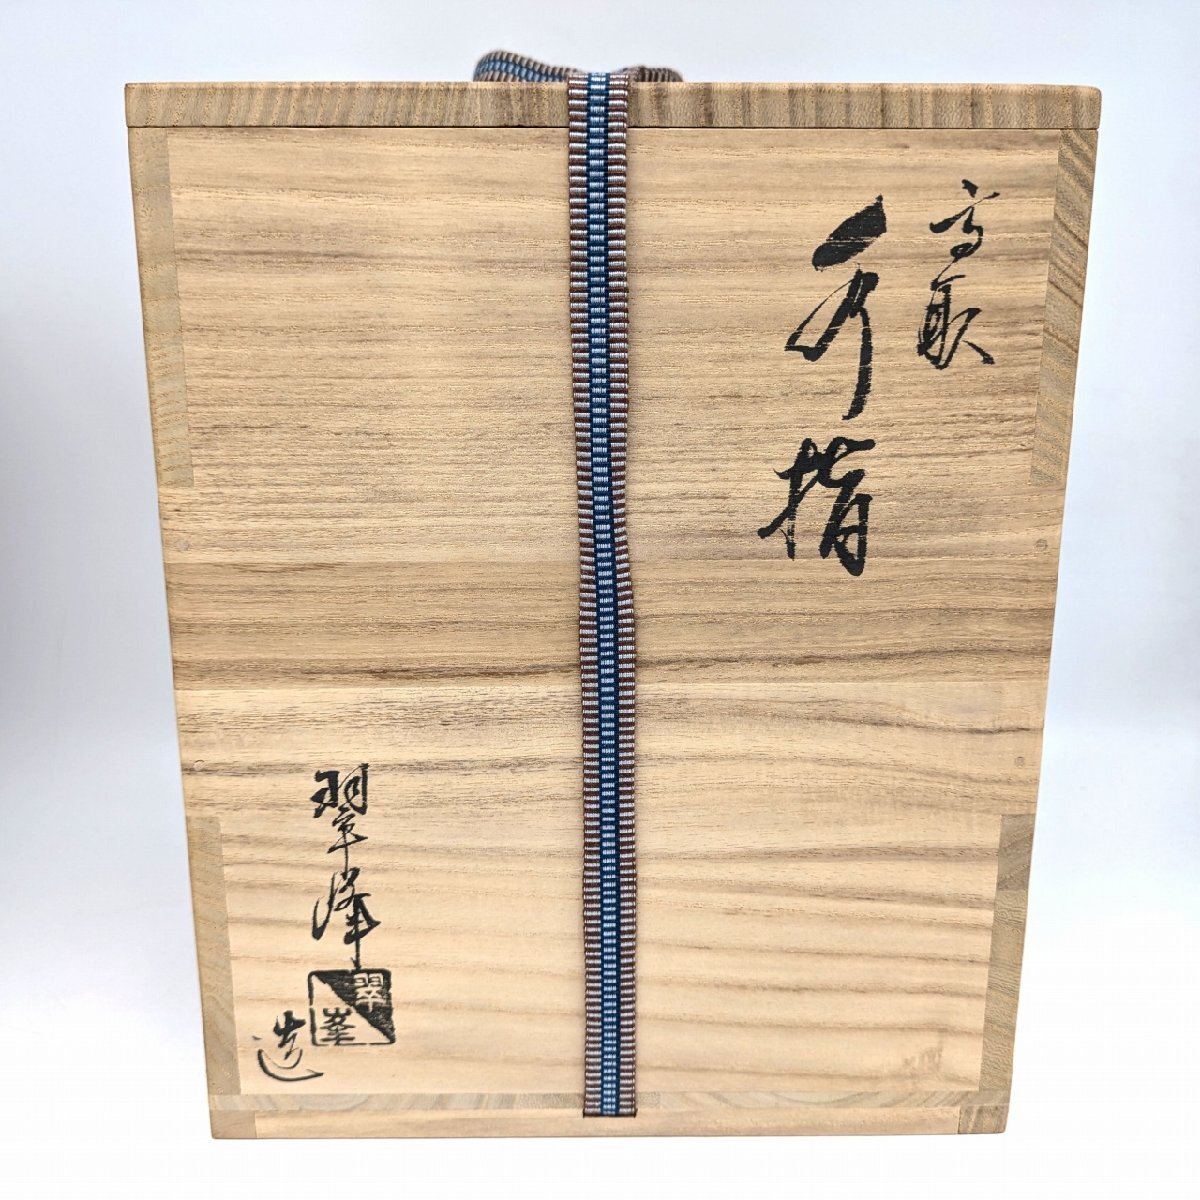 高取
水指
翠峰
翠峯
造